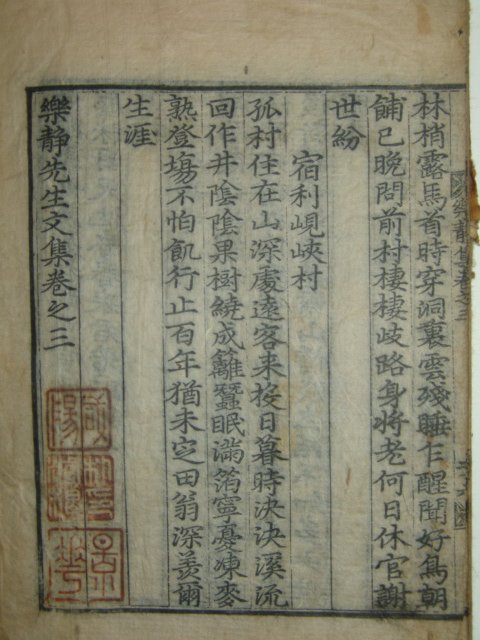 樂靜集卷之三
林梢露馬首時穿洞裏雲殘睡乍醒聞好鳥朝
餔已晩問前村棲棲歧路身將老何日休官謝
世紛
宿利峴峽村
孤村住在山深處遠客来投日暮時決決溪流
回作井陰陰果樹繞成籬蠶眠滿箔寧憂凍麥
熟登塲不怕飢行止百年猶未㝎田翁深羨爾
生涯
樂静先生文集卷之三